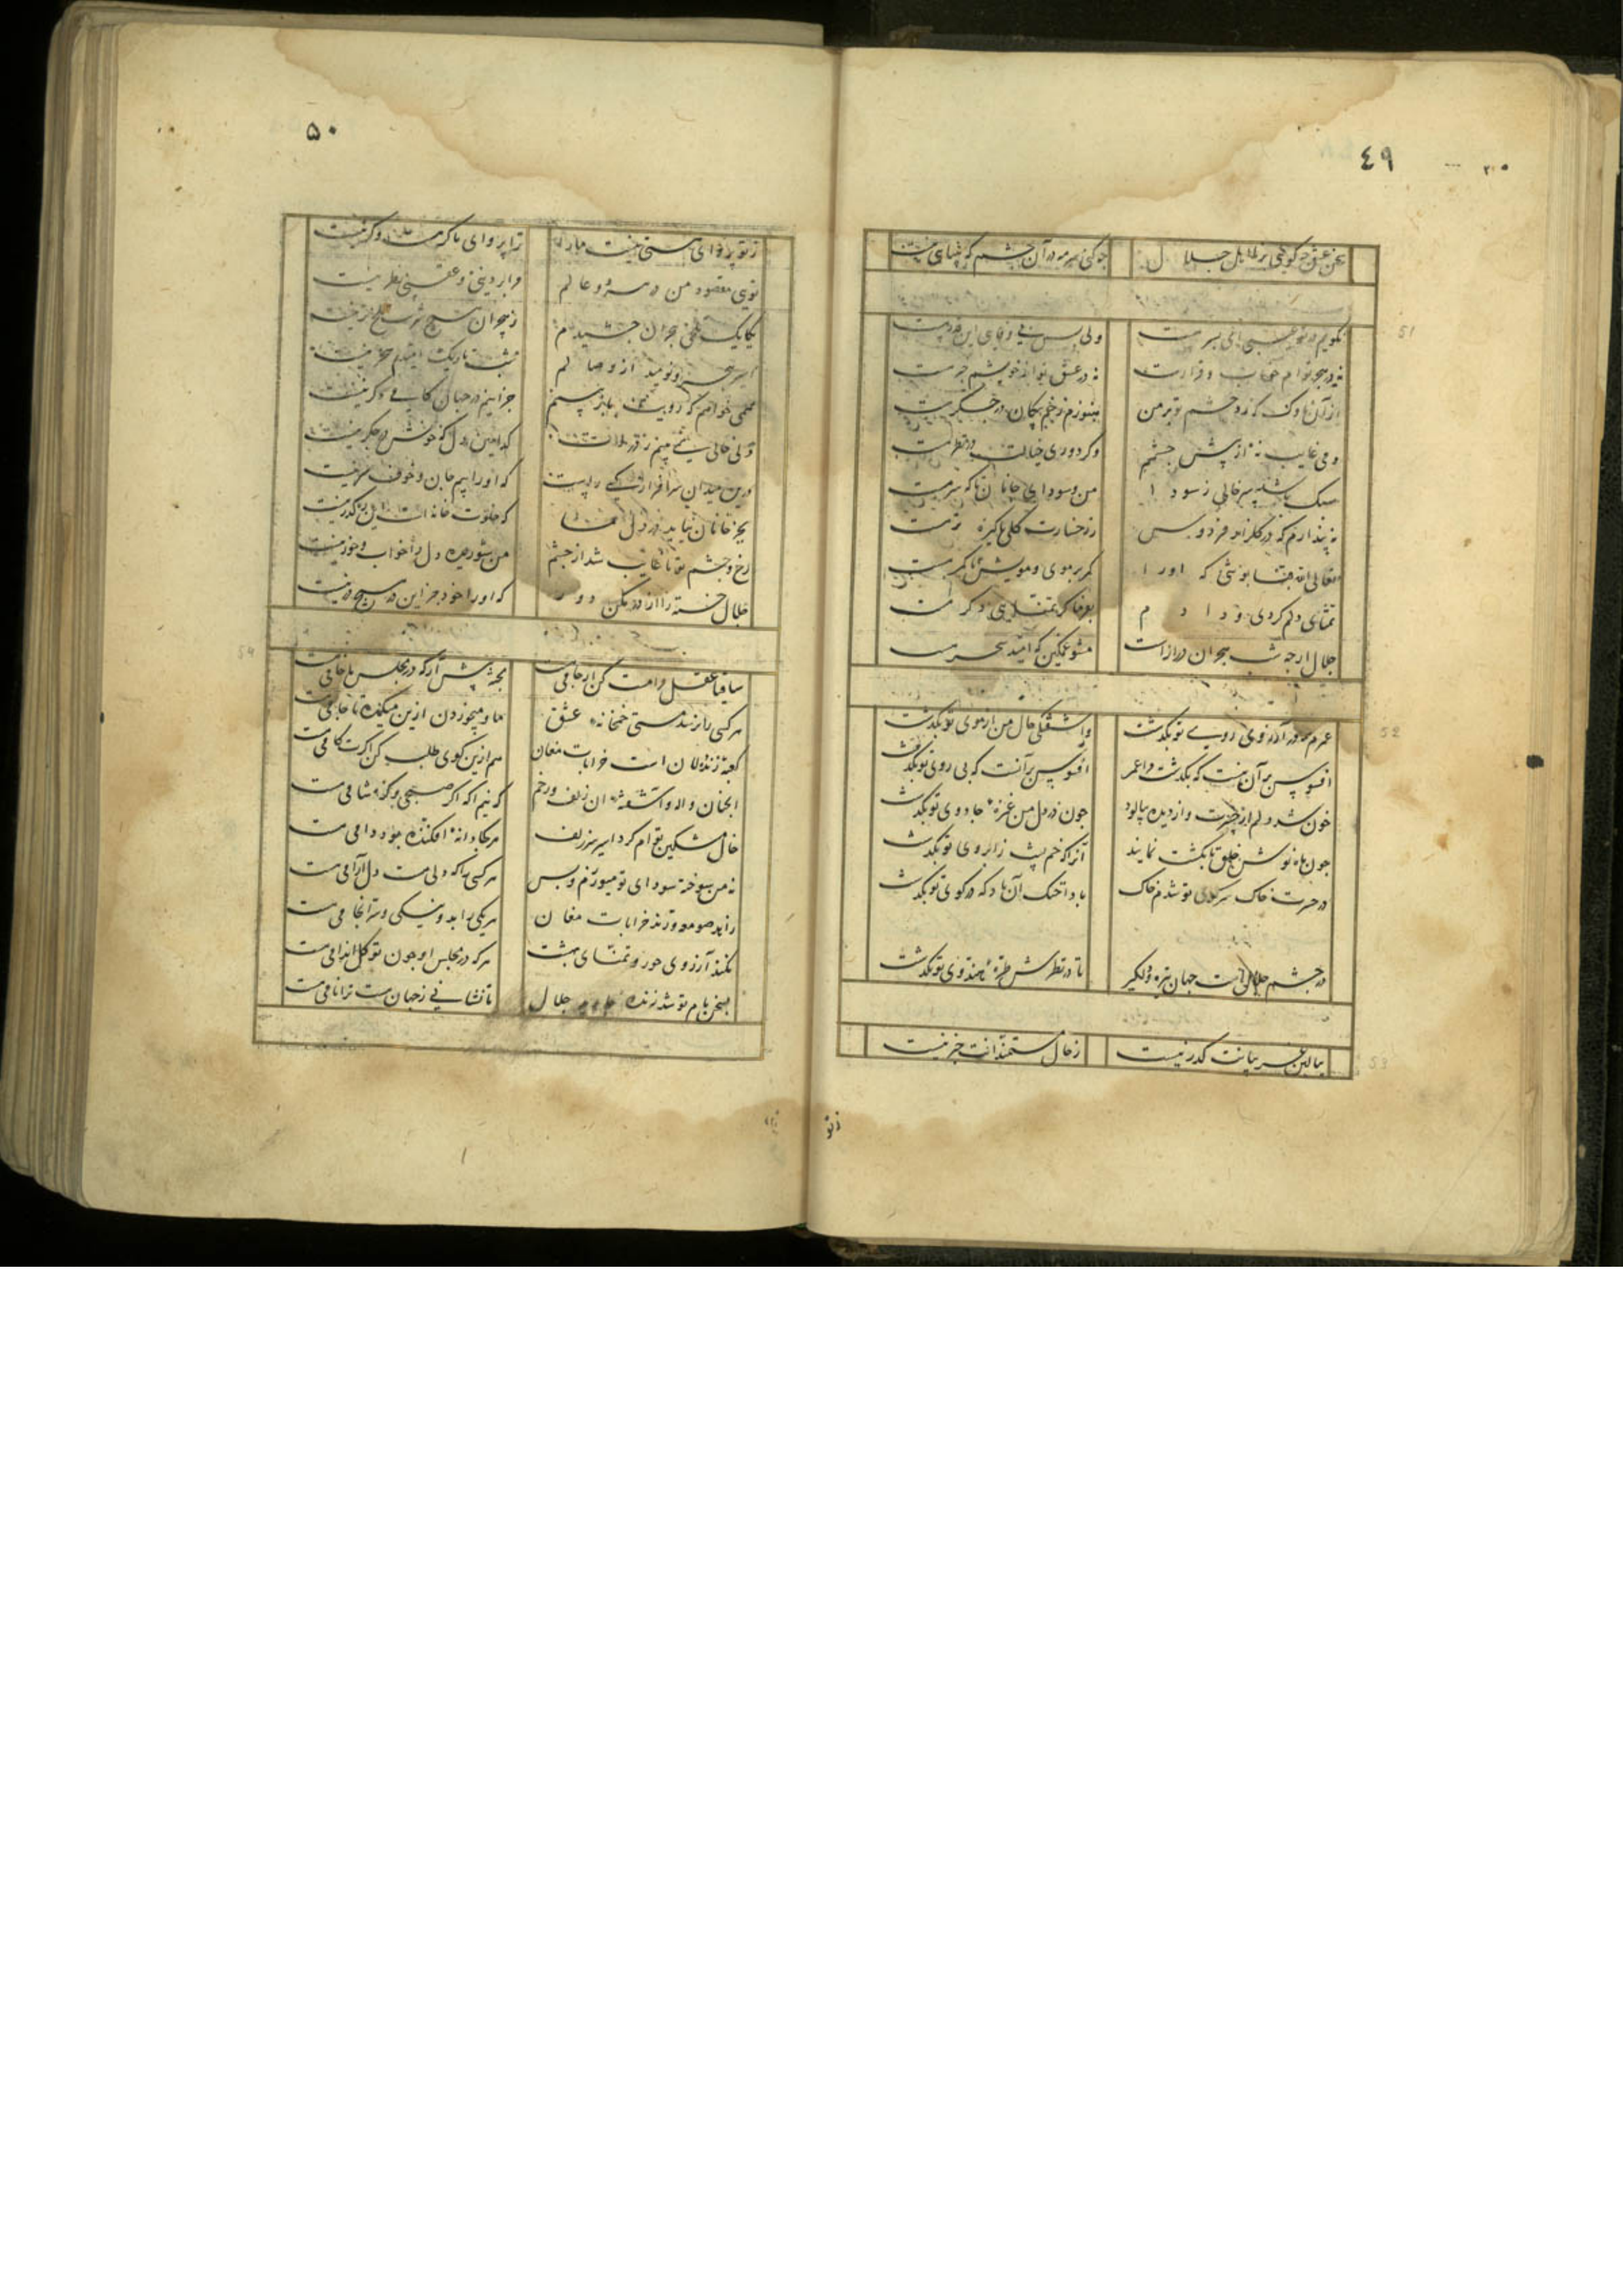 ٤٩
سخن عشق چه گوئی بر نااهل جلال
چه کنی سرمه در آن چشم که بینائی نیست
51
نکویم در تو عیبی ای پسر هست
ولی بس بی وفای این قدر هست
نه در هجر توام خواب و قرارست
نه در عشق تو از خویشم خبر هست
از آن ناوک که زد چشم تو بر من
هنوزم زخم پیکان در جگر هست
دمی غایب نه از پیش چشمم
وکر دوری خیالت در نظر هست
سبک باشد سر خالی ز سودا
من و سودای جانان تا که سر هست
نپندارم که در گلزار فردوس
ز رخسارت گلی پاکیزه تر هست
کمر بر موی و مویش تا کمر هست
تمنای دلم کردی و دادم
بفرما گر تمنای دگر هست
جلال ارچه شب هجران درازست
مشو غمگین که امید سحر هست
52
عمرم همه در آرزوی روی تو بگذشت
و آشفتگی حال من از موی تو بگذشت
افسوس نه آن نیست که بگذشت مرا عمر
افسوس بر آنست که بی روی تو بگذشت
خون شد دلم از حسرت و از دیده بپالود
چون در دل من غمزه جادوی تو بگذشت
چون ماه نوش خلق بانگشت نمایند
آنرا که خم پشت ز ابروی تو بگذشت
در حسرت خاک سر کوی تو شدم خاک
باد آخنک آن باد که در کوی تو بگذشت
در چشم جلال است جهان تیره و دلگیر
تا در نظرش طره هندوی تو بگذشت
53
ببالین غریبانت گذر نیست
ز حال مستمندانت خبر نیست
زتو
٥٠
ز تو پروای هستی نیست ما را
ترا پروای ما گر هست و گر نیست
توئی مقصود من در هر دو عالم
مرا بر دینی و عقبی نظر نیست
یکایک تلخی هجران چشیدم
ز هجران هیچ شربت تلخ تر نیست
اسیر هجر و نومید از وصالم
شب تاریک امیدم سحر نیست
همی خواهم که رویت باز بینم
جز اینم در جهان کامی دگر نیست
ولی خالی نمی بینم ز دردت
کدامین دل که خونش در جگر نیست
درین میدان سرافرازی کسی راست
که او را بیم جان و خوف سر نیست
بجز جانان نیاید در دل ما
که خلوت خانه است این رهگذر نیست
رخ و چشم تو تا غایب شد از چشم
من شوریده دل را خواب و خور نیست
جلال خسته را از در مکن دور
که او را خود جز این در هیچ در نیست
54
ساقیا عقل مرا مست کن ار جامی هست
پخته پیش آر که در مجلس ما خامی هست
هر کسی را نرسد مستی خمخانه عشق
ما و می خوردن ازین میکده تا جامی هست
کعبه زنده دلان است خرابات مغان
هم ازین کوی طلب کن اگرت کامی هست
آنچنان واله و آشفته آن زلف و رخم
که نیم آگه اگر صبحی و گر شامی هست
خال مشکین توام کرد اسیر سر زلف
هر کجا دانه افکنده بود دامی هست
نه من سوخته سودای تو میورزم و بس
هر کسی را که دلی هست دل آرامی هست
زاهد صومعه و رند خرابات مغان
هر یکی را بد و نیکی و سرانجامی هست
نکند آرزوی حور و تمنای بهشت
هر که در مجلس او چون تو گل اندامی هست
بسخن نام تو شد زنده جاوید جلال
تا نشانی ز جهان هست ترا نامی هست